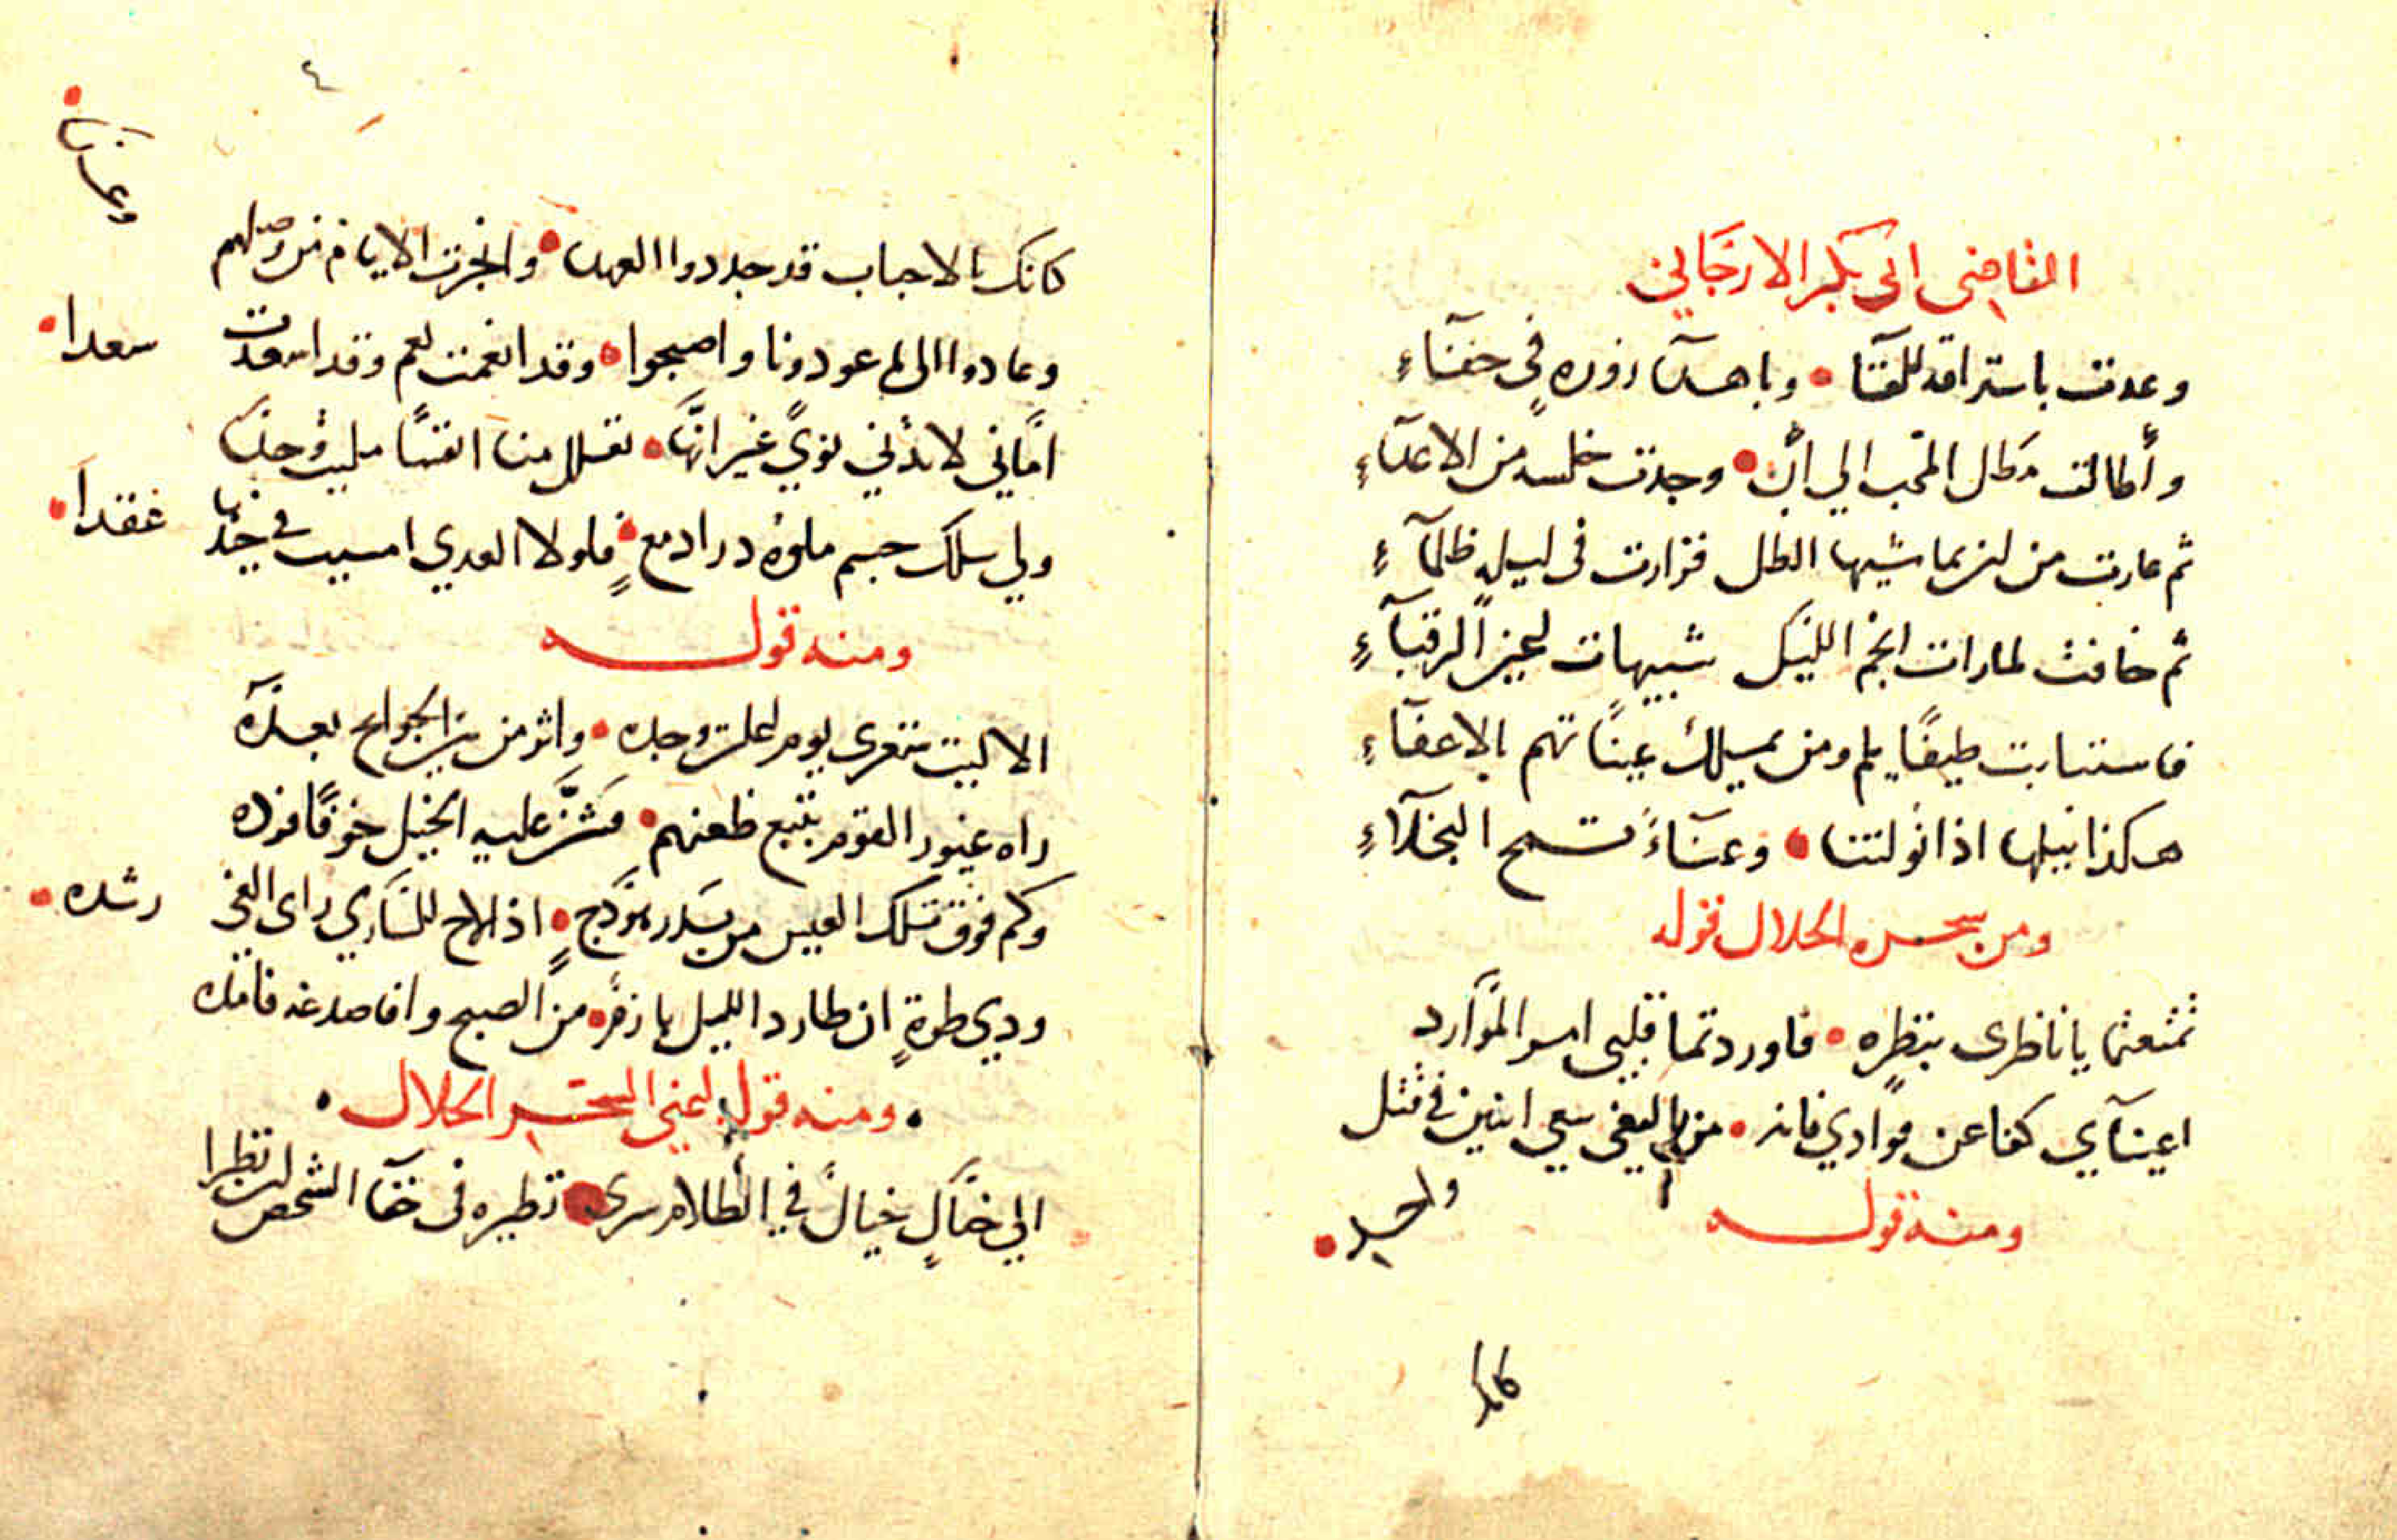 القاضى ابى بكر الارجاني
وعدت باستراقة للقآ • وباهدآ زوره في خفآء
وأطالت مطال المحب الي أن • وجدت خلسه من الاعدآء
ثم غارت من ان يماشيها الظل فزارت فى ليله ظلمآء
ثم خافت لمارات انجم الليل شبيهات اعين الرقبآء
فاستنابت طيفًا يلم ومن يملك عينًا تهم بالاغفآء
هكذا نيلها اذا نولتنا • وعنآءً تسمح البخلآء
ومن سحره الحلال قوله
تمتعتما يا ناظرى بنظره • فاوردتما قلبي امر الموارد
اعينآي كفا عن فوادي فانه • من البغي سعي اثنين في قتل واحد •
ومنه قوله
كانك
كانك بالاحباب قد جددوا العهدا • وانجزت الايام من وصلهم وعدا •
وعادوا الى ما عودونا واصبحوا • وقد انعمت نعم وقد اسعدت سعدا •
امانى لا تدني نوي غير انها • تعلل منا انفسًا مليت وجدا
ولي سلك جسم ملؤه در ادمع • فلولا العدي امسيت في جيدها عقدا •
ومنه قوله
الا ليت شعرى يوم اعلنت وجده • واثر من بين الجوانح بعده
راه غيور القوم يتبع ظعنهم • فشن عليه الخيل خوفًا فرده
وكم فوق تلك العيس من بدر هودج • اذا لاح للساري راى الغي رشده •
وذي طرة ان طارد الليل بازفر • من الصبح وافا صدغه فامده
• ومنه قوله اعني السحر الحلال •
الي خيال خيال في الظلام سرى • نظيره فى خفآ الشخص ان نظرا